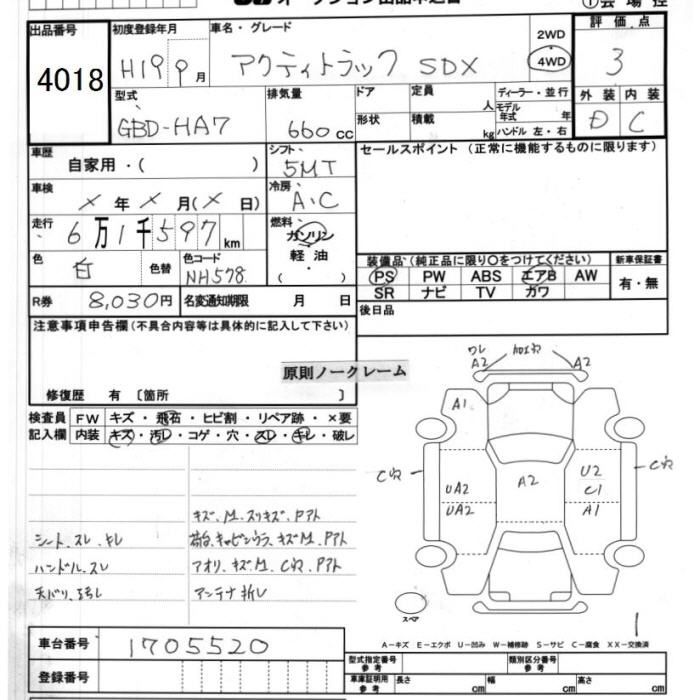 出品番号 初度登録年月 車名・グレード 評価点
4018 H19 9月 アクティトラック SDX 2WD 4WD 3
型式 排気量 ドア 定員 人 ディーラー・並行 外装 内装
GBD-HA7 660cc 形状 積載 kg モデル年式 年 ハンドル 左・右 D C
車歴 自家用・( ) シフト 5MT セールスポイント (正常に機能するものに限ります)
車検 × 年 × 月(× 日) 冷房 A・C
走行 6万1千597km 燃料 ガソリン 軽油・( )
色 白 色替 色コード NH578
装備品(純正品に限り○をつけてください) 新車保証書
PS PW ABS エアB AW 有・無
SR ナビ TV カワ
R券 8,030円 名変通知期限 月 日 後日品
注意事項申告欄(不具合内容等は具体的に記入して下さい)
原則ノークレーム
修復歴 有〔箇所 〕
検査員記入欄 FW キズ・飛石・ヒビ割・リペア跡・×要
内装 キズ・汚レ・コゲ・穴・スレ・キレ・破レ
ワレ A2 A2
A1
UA2 UA2 A2 U2 C1 A1
キズ、M、スリキズ、Pアト
シート、スレ、キレ
ハンドル、スレ
アンテナ折レ
スペア
A-キズ E-エクボ U-凹み W-補修跡 S-サビ C-腐食 XX-交換済
車台番号 1705520
登録番号
型式指定番号 参考 類別区分番号 参考
車庫証明用 参考 長さ cm 幅 cm 高さ cm